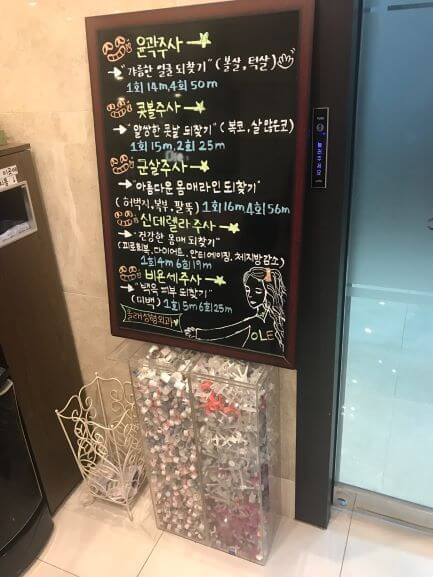 윤곽주사
"갸름한 얼굴 되찾기" (볼살, 턱살)
1회 14m, 4회 50m
콧볼주사
"얄쌍한 콧날 되찾기" (복코, 살많은코)
1회 15m, 2회 25m
군살주사
"아름다운 몸매라인 되찾기"
(허벅지, 복부, 팔뚝) 1회 16m 4회 56m
신데렐라주사
"건강한 몸매 되찾기"
(피로회복, 다이어트, 안티에이징, 체지방감소)
1회 4m 6회 19m
비욘세주사
"백옥 피부 되찾기"
(미백) 1회 5m 6회 25m
올래성형외과
OLE
눌러주세요